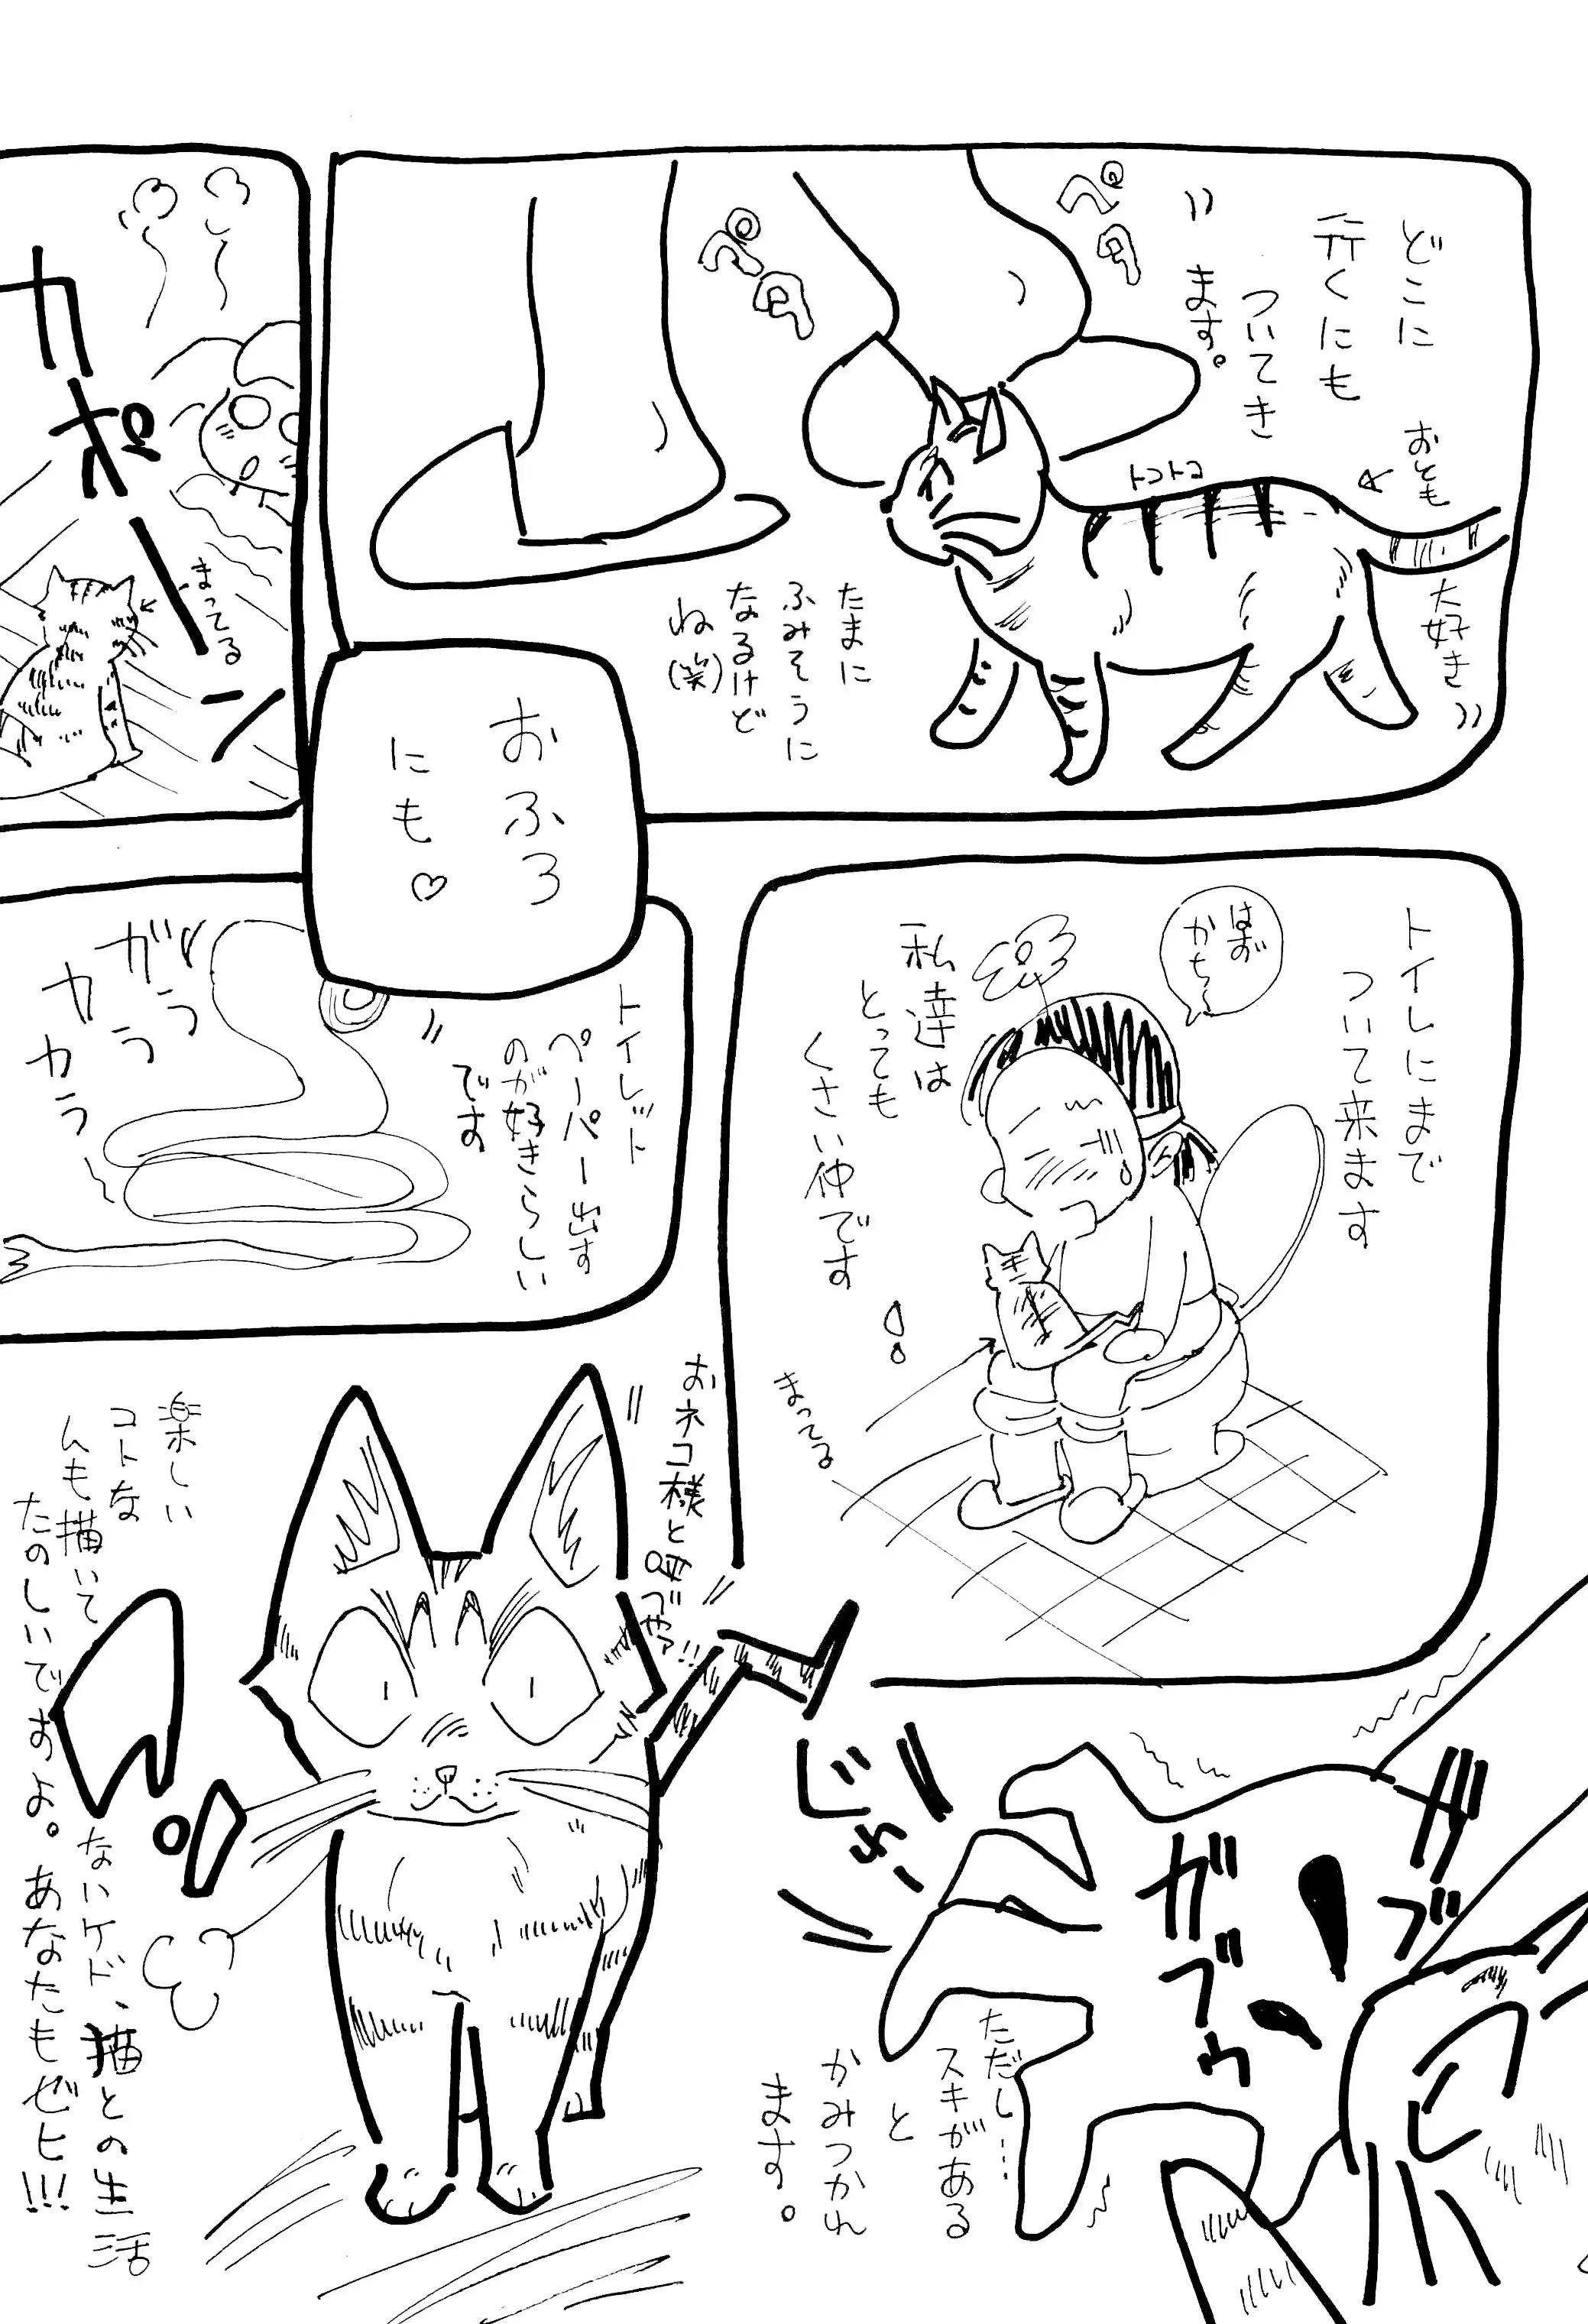 どこに
行くにも
ついてき
ます。
おとも
大好き
トコトコ
ペタ
ペタ
たまに
ふみそうに
なるけど
ね(笑)
おふろ
にも♡
カポーン
まってる
トイレにまで
ついて来ます
はお
かち〜
私達は
とっても
くさい仲です
!
まってる
トイレット
ペーパー出す
のが好きらしい
です
ガラ
ラ
カ
カラ
ガブ
ガブ
ゥ
!
じわー
ただし…
スキがある
と
かみつかれ
ます。
おネコ様と呼べやァ!!
楽しい
コトな
んも描いて
ないケド、猫との生活
たのしいですよ。あなたもぜヒ!!!